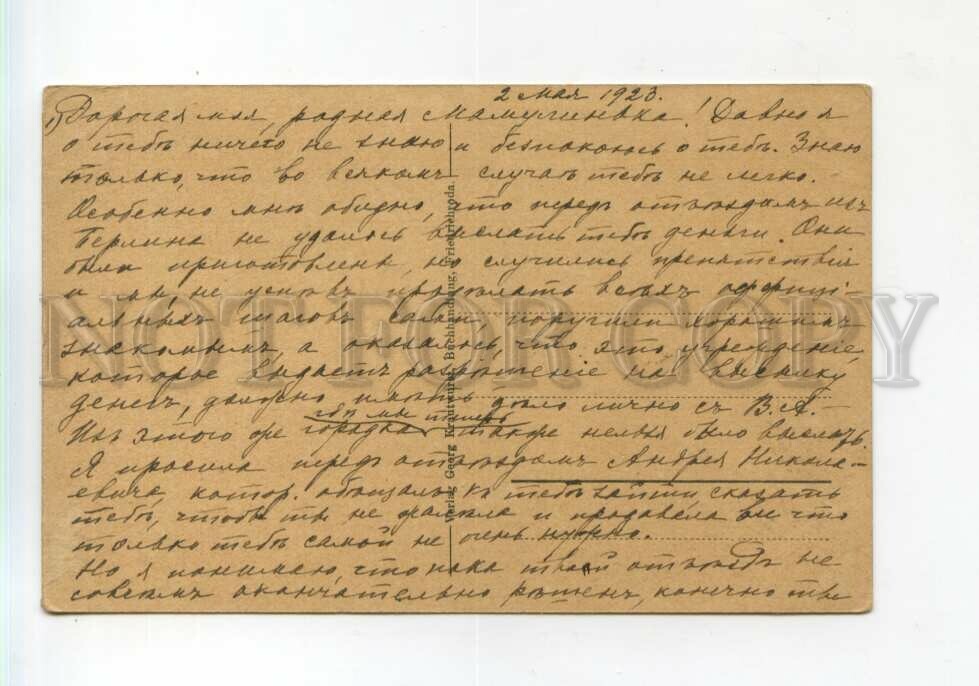 2 мая 1923.
1) Дорогая моя, родная Мамулинька! Давно я
о тебѣ ничего не знаю и безпокоюсь о тебѣ. Знаю
только, что во всякомъ случаѣ тебѣ не легко.
Особенно мнѣ обидно, что передъ отъѣздомъ изъ
Берлина не удалось выслать тебѣ деньги. Они
были приготовлены, но случились препятствія
и мы, не успѣвъ продѣлать всѣхъ оффиці-
альныхъ шаговъ сами, поручили хорошимъ
знакомымъ, а оказалось, что это учрежденіе
которое выдаетъ разрѣшеніе на высылку
денегъ, должно имѣть дѣло лично съ В. А.—
гдѣ мы теперь
Изъ этого же городка также нельзя было выслать.
Я просила передъ отъѣздомъ Андрея Никола-
евича, котор. обѣщалъ къ тебѣ зайти, сказать
тебѣ, чтобы ты не жалѣла и продавала бы что
только тебѣ самой не очень нужно.
Но я понимаю, что пока твой отъѣздъ не
совсѣмъ окончательно рѣшенъ, конечно ты
Verlag Georg Krautwurst, Buchhandlung, Friedrichroda.
NOT FOR COPY